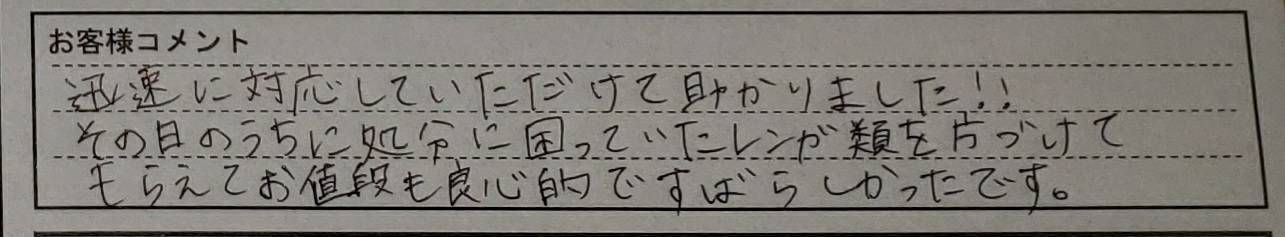 お客様コメント
迅速に対応していただけて助かりました!!
その日のうちに処分に困っていたレンガ類を片づけて
もらえてお値段も良心的ですばらしかったです。